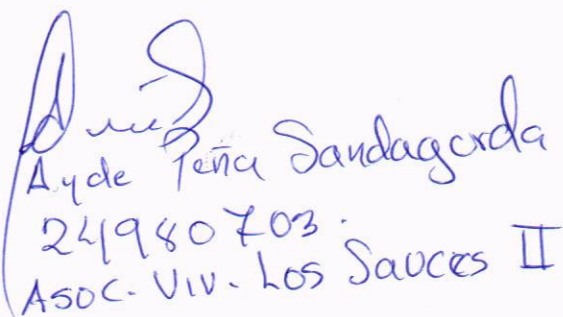 Ayde Peña Sandagorda
24980703.
ASOC. VIV. Los Sauces II